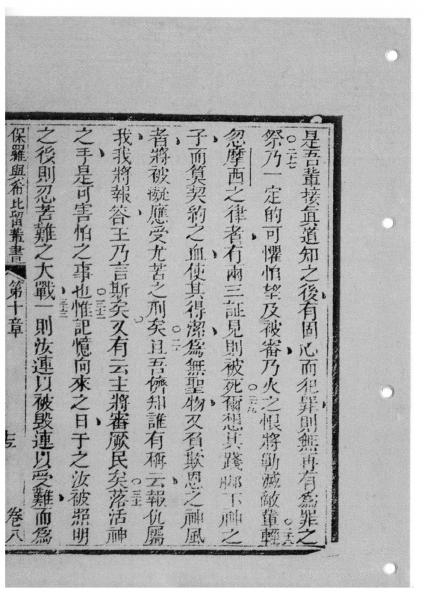 是吾輩接眞道知之後有固心而犯罪則無再有為罪之
祭乃一定的可懼怕望及被審乃火之恨將勦滅敵輩輕
忽摩西之律者有兩三証見則被死爾想其踐腳下神之
子而算契約之血使其得潔為無聖物又負欺恩之神風
者將被擬應受尤苦之刑矣且吾儕知誰有稱云報仇屬
我我將報答王乃言斯矣又有云主將審厥民矣落活神
之手是可害怕之事也惟記憶向來之日于之汝被照明
之後則忍苦難之大戰一則汝連以被毀連以受難而為
保羅與希比留書 第十章 卷八